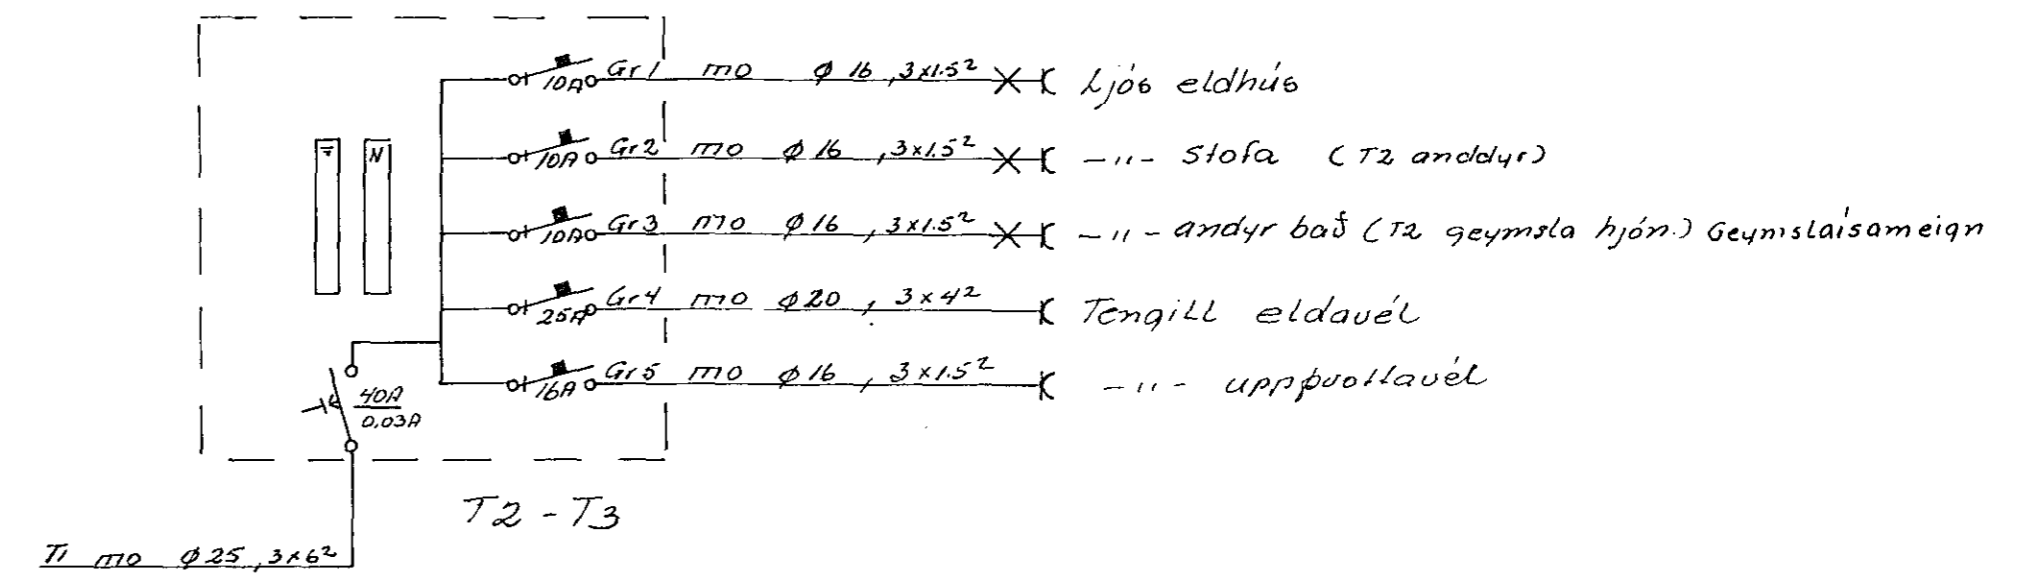 10A Gr1 mo ø 16, 3x1.5² Ljós eldhús
N
10A Gr2 mo ø 16, 3x1.5² -"- Stofa (T2 anddyr)
10A Gr3 mo ø 16, 3x1.5² -"- andyr bað (T2 geymsla hjón.) Geymslaísameign
25A Gr4 mo ø20, 3x4² Tengill eldavél
16A Gr5 mo ø16, 3x1.5² -"- uppþvottavél
40A
0,03A
T2 - T3
T1 mo ø25, 3x6²